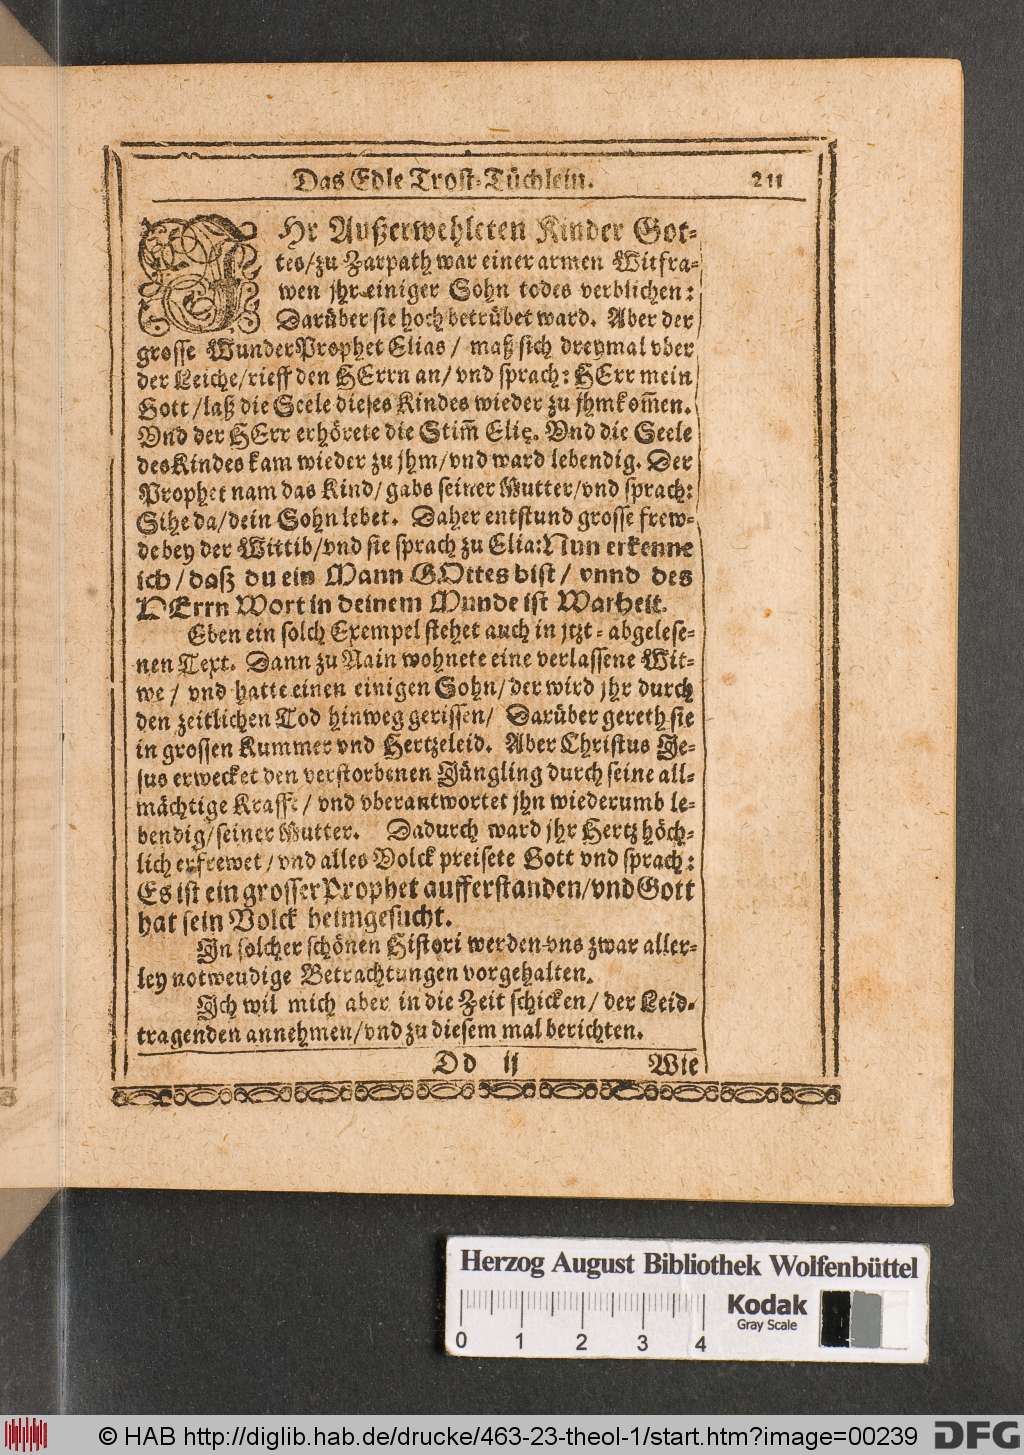 Das Edle Trost-Tüchlein. 211
IHr Außerwehleten Kinder Got-
tes/ zu Zarpath war einer armen Witfra-
wen jhr einiger Sohn todes verblichen:
Darüber sie hoch betrübet ward. Aber der
grosse WunderProphet Elias / maß sich dreymal vber
der Leiche/ rieff den HErrn an/ vnd sprach: HErr mein
Gott / laß die Seele dieses Kindes wieder zu jhm kom̃en.
Vnd der HErr erhörete die Stim̃ Elię. Vnd die Seele
des Kindes kam wieder zu jhm/ vnd ward lebendig. Der
Prophet nam das Kind/ gabs seiner Mutter/ vnd sprach:
Sihe da/ dein Sohn lebet. Daher entstund grosse frew-
de bey der Wittib/ vnd sie sprach zu Elia: Nun erkenne
ich / dasz du ein Mann GOttes bist / vnnd des
HErrn Wort in deinem Munde ist Warheit.
Eben ein solch Exempel stehet auch in jtzt-abgelese-
nen Text. Dann zu Nain wohnete eine verlassene Wit-
we / vnd hatte einen einigen Sohn/ der wird jhr durch
den zeitlichen Tod hinweg gerissen/ Darüber gereth sie
in grossen Kummer vnd Hertzeleid. Aber Christus Je-
sus erwecket den verstorbenen Jüngling durch seine all-
mächtige Krafft / vnd vberantwortet jhn wiederumb le-
bendig/ seiner Mutter. Dadurch ward jhr Hertz höch-
lich erfrewet / vnd alles Volck preisete Gott vnd sprach:
Es ist ein grosser Prophet aufferstanden/ vnd Gott
hat sein Volck heimgesucht.
In solcher schönen Histori werden vns zwar aller-
ley notwendige Betrachtungen vorgehalten.
Ich wil mich aber in die Zeit schicken / der Leid-
tragenden annehmen/ vnd zu diesem mal berichten.
Dd ij Wie
Herzog August Bibliothek Wolfenbüttel
Kodak
Gray Scale
0 1 2 3 4
© HAB http://diglib.hab.de/drucke/463-23-theol-1/start.htm?image=00239
DFG